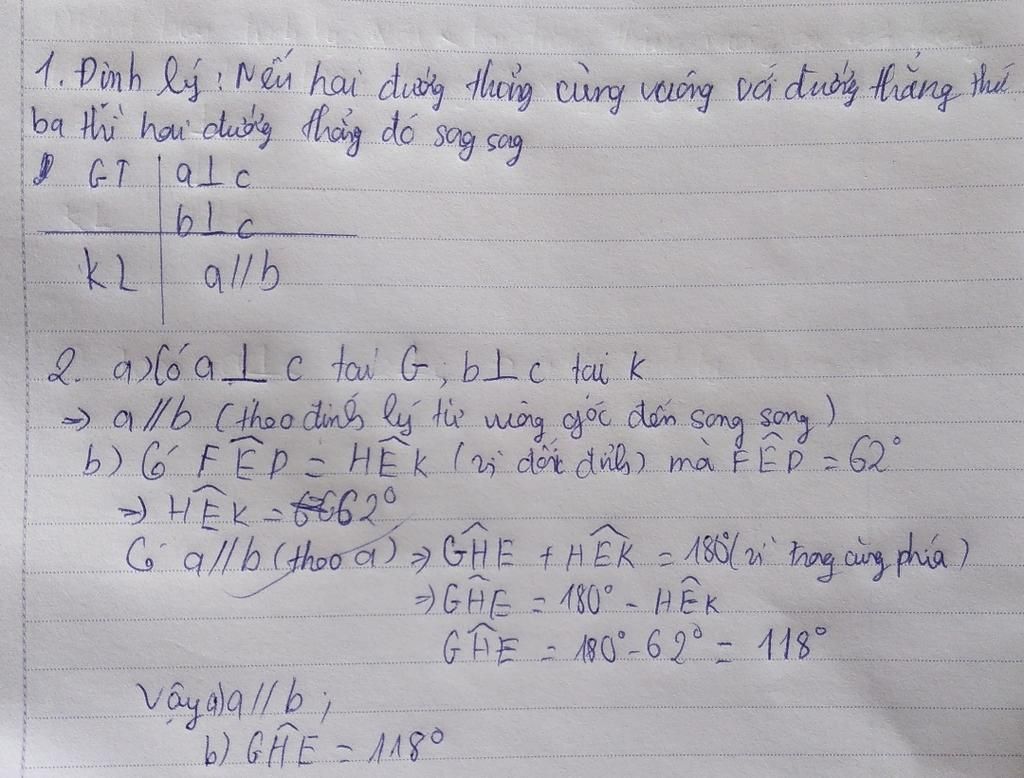 1. Định lý: Nếu hai đường thẳng cùng vuông với đường thẳng thứ
ba thì hai đường thẳng đó sog sog
GT | a⊥c
b⊥c
KL | a//b
2. a) Có a⊥c tại G, b⊥c tại K
⇒ a//b (theo định lý từ vuông góc đến song song)
b) Có FÊD = HÊK (vì đối đỉnh) mà FÊD = 62°
⇒ HÊK = 62°
Có a//b (theo a) ⇒ GĤE + HÊK = 180° (vì trong cùng phía)
⇒ GĤE = 180° - HÊK
GĤE = 180° - 62° = 118°
Vậy a) a//b ;
b) GĤE = 118°